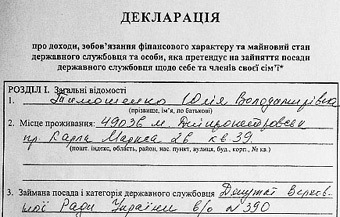 ДЕКЛАРАЦІЯ
про доходи, зобов'язання фінансового характеру та майновий стан
державного службовця та особи, яка претендує на зайняття посади
державного службовця щодо себе та членів своєї сім'ї*
РОЗДІЛ І. Загальні відомості
1. Тимошенко Юлія Володимирівна
(прізвище, ім'я, по батькові)
2. Місце проживання: 49038 м. Дніпропетровськ
пр. Карла Маркса 2в кв 39.
(пошт. індекс, область, район, нас. пункт, вулиця, буд., корп., № кв.)
3. Займана посада і категорія державного службовця Депутат Верхов-
ної Ради України в/о №390